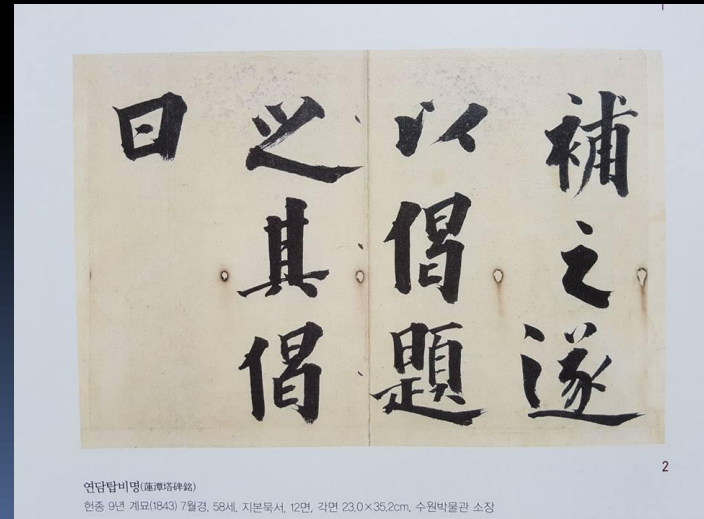 補之遂
以偈題
之其偈
曰
2
연담탑비명(蓮潭塔碑銘)
헌종 9년 계묘(1843) 7월경, 58세, 지본묵서, 12면, 각면 23.0×35.2cm, 수원박물관 소장